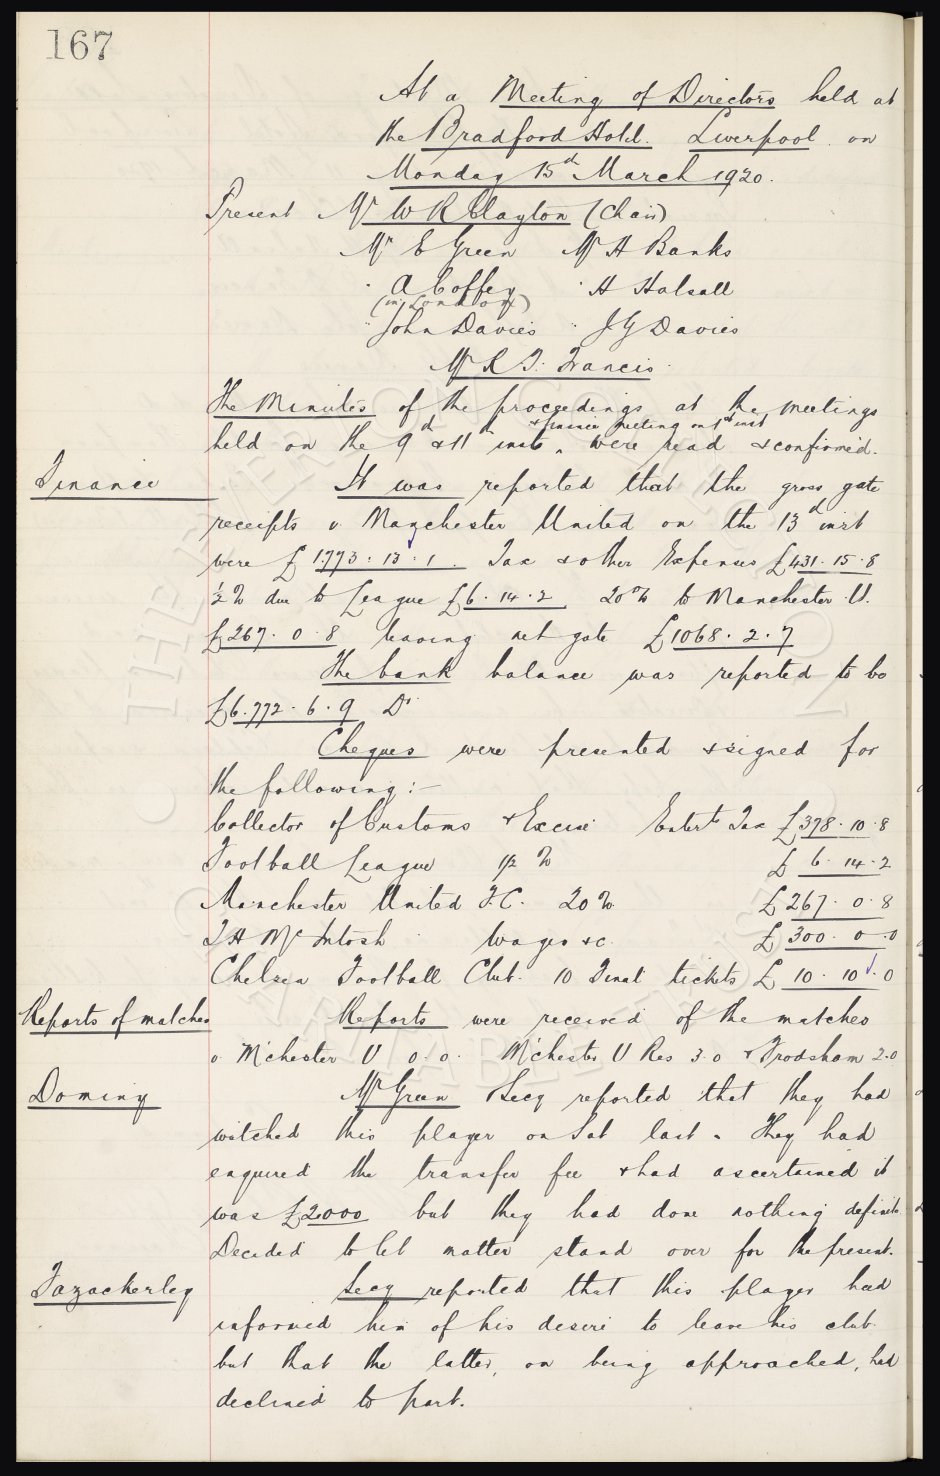 167
At a Meeting of Directors held at
the Bradford Hotel. Liverpool on
Monday 15th March 1920.
Present Mr W R Clayton (Chair)
Mr E Green Mr H Banks
" A Coffey " H Halsall
(in London)
" John Davies " J G Davies
Mr R T. Francis
The Minutes of the proceedings at the meetings
& finance meeting on 1st inst
held on the 9th & 11th insts. were read & confirmed.
Finance
It was reported that the gross gate
receipts v Manchester United on the 13th inst
were £1773. 13. 1. Tax & other Expenses £431. 15. 8
½ % due to League £6. 14. 2 20% to Manchester U.
£267. 0. 8 leaving net gate £1068. 2. 7
The bank balance was reported to be
£6.772. 6. 9 Dr
Cheques were presented & signed for
the following :-
Collector of Customs & Excise Entert Tax £398. 10. 8
Football League 1/2 % £ 6. 14. 2
Manchester United F.C. 20% £267. 0. 8
T H McIntosh Wages &c. £300. 0. 0
Chelsea Football Club. 10 Final tickets £10. 10. 0
Reports of matches
Reports were received of the matches
v M'chester U 0.0. M'chester U Res 3.0 & Frodsham 2.0
Dominy
Mr Green & Secy reported that they had
watched this player on Sat last. They had
enquired the transfer fee & had ascertained it
was £2000 but they had done nothing definite
Decided to let matter stand over for the present.
Fazackerley
Secy reported that this player had
informed him of his desire to leave his club
but that the latter, on being approached, had
declined to part.
THE EVERTON COLLECTION
CHARITABLE TRUST